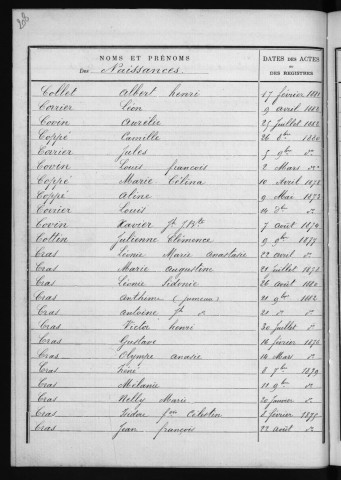 NOMS ET PRÉNOMS
DATES DES ACTES
ET DES REGISTRES
Des Naissances.
Collet Albert henri 17 février 1882
Corrier Léon 9 avril 1882
Covin Aurélie 25 Juillet 1882
Coppé Camille 26 8bre 1880
Corrier Jules 5 9bre do
Covin Louis françois 2 Mars do
Coppé Marie Célina 10 Avril 1878
Coppé Aline 9 Mai 1873
Corrier Louis 14 8bre do
Covin Xavier Jh J.Bte 7 août 1874
Cottin Julienne Clémence 9 9bre 1877
Cras Léonie Marie Anastasie 22 avril do
Cras Marie Augustine 21 juillet 1878
Cras Léonie Sidonie 26 août 1880
Cras Anthime (jumeau) 21 9bre 1882
Cras Antoine Jh do 21 do do
Cras Victor henri 20 juillet do
Cras Gustave 16 février 1876
Cras Olympe Anasie 14 Mars do
Cras René 8 7bre 1879
Cras Mélanie 11 9bre do
Cras Nelly Marie 20 Janvier do
Cras Isidore fois Célestin 2 février 1877
Cras Jean françois 22 août do